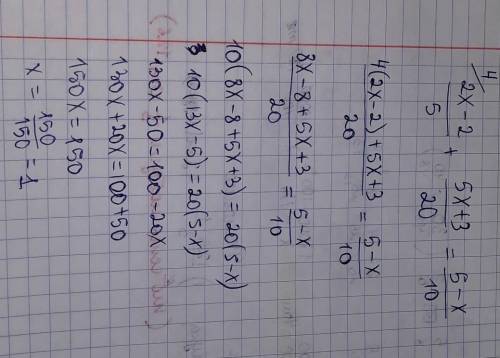 4/ (2x-2)/5 + (5x+3)/20 = (5-x)/10
(4(2x-2)+5x+3)/20 = (5-x)/10
(8x-8+5x+3)/20 = (5-x)/10
10(8x-8+5x+3) = 20(5-x)
10(13x-5) = 20(5-x)
130x-50 = 100-20x
130x+20x = 100+50
150x = 150
x = 150/150 = 1